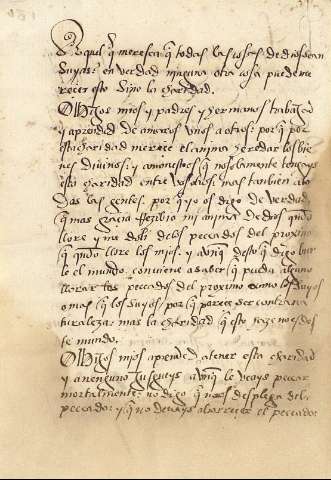 Aquel q̃ meresca q̃ todas las cosas de dios sean
suyas: en verdad ninguna otra cosa puede me
recer esto sino la charidad.
O hijos mios y padres y hermanos trabajad
y aprended de amaros unos a otros: por q̃ por
esta charidad merece el anima heredar los bie
nes divinos: y amonesto os q̃ no solamente tengays
esta caridad entre vosotros mas tambien a to
das las gentes. por q̃ yo os digo de verdad
q̃ mas gracia recibio mi anima de dios quãdo
llore y me doli delos peccados del proximo
q̃ quãdo llore los mios. y aunq̃ desto q̃ digo burle
le el mundo. conviene a saber q̃ pueda alguno
llorar los peccados del proximo como los suyos
o mas q̃ los suyos por q̃ parece ser contra na
turaleza: mas la charidad q̃ esto haze no es des
te mundo.
O hijos mios aprended a tener esta charidad
y a ninguno jusgueys aunq̃ le veays peccar
mortalmente: no digo q̃ no os desplega del
peccado: y q̃ no devays aborrecer el peccado